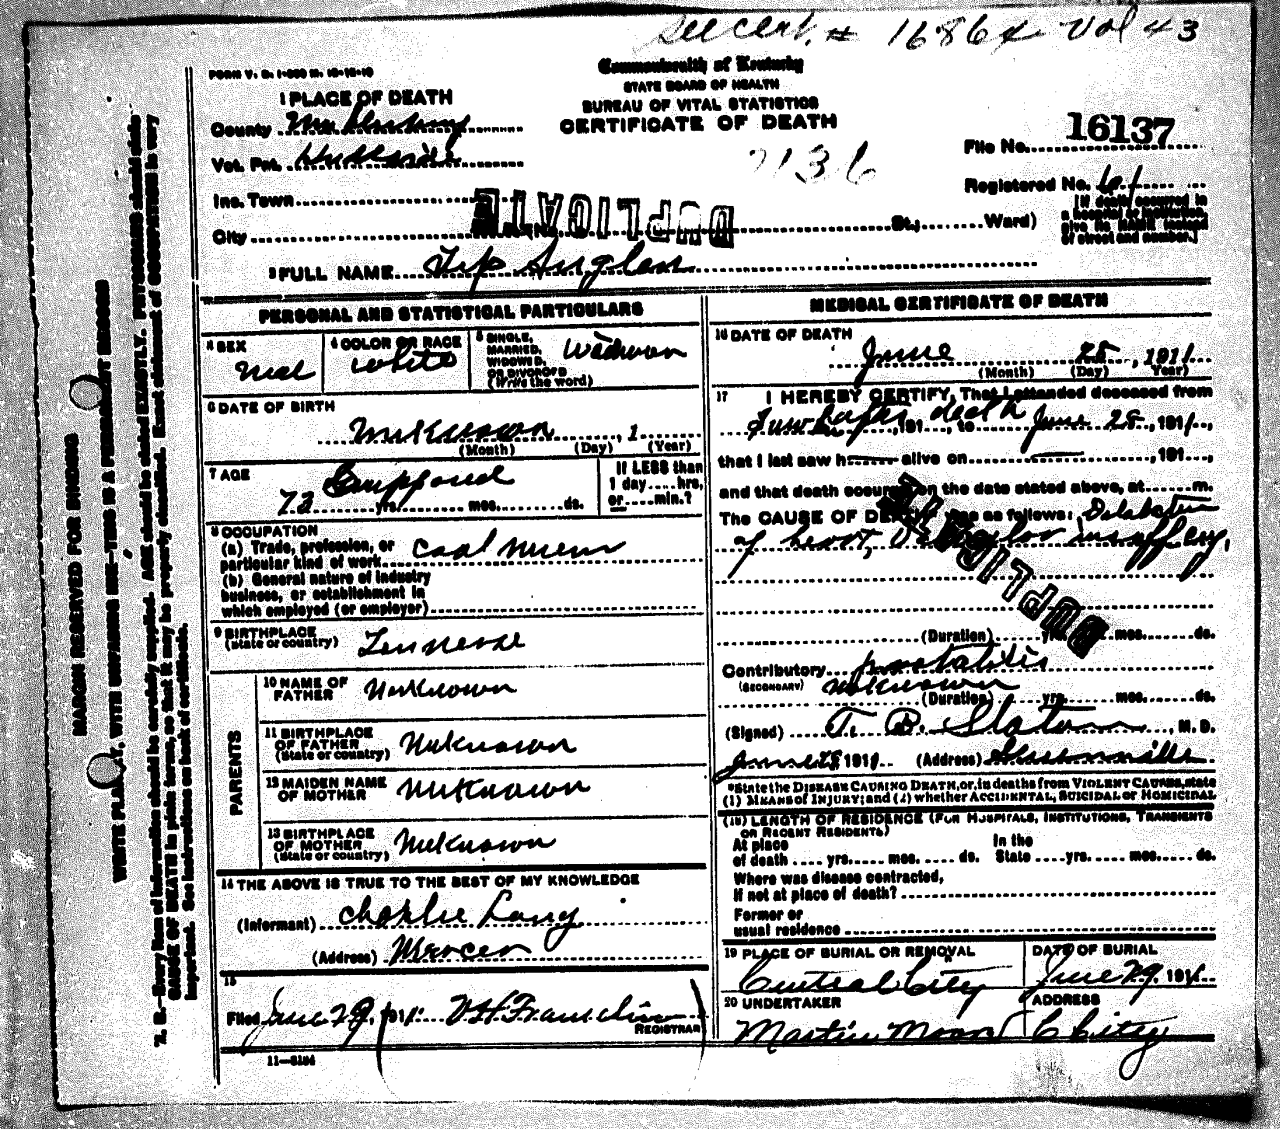 See cert. # 16864 Vol 43
FORM V. S. 1-
Commonwealth of Kentucky
STATE BOARD OF HEALTH
BUREAU OF VITAL STATISTICS
CERTIFICATE OF DEATH
1 PLACE OF DEATH
County
Vot. Pct.
Inc. Town
City
St.; Ward)
File No. 16137
Registered No. 61
[If death occurred in
a hospital or institution,
give its NAME instead
of street and number.]
2136
DUPLICATE
2 FULL NAME Tip
PERSONAL AND STATISTICAL PARTICULARS
3 SEX
Mal
4 COLOR OR RACE
White
5 SINGLE,
MARRIED,
WIDOWED,
OR DIVORCED
(Write the word)
6 DATE OF BIRTH
Unknown , 1
(Month) (Day) (Year)
7 AGE
Supposed
72 yrs. mos. ds.
If LESS than
1 day hrs,
or min.?
8 OCCUPATION
(a) Trade, profession, or
particular kind of work Coal
(b) General nature of industry
business, or establishment in
which employed (or employer)
9 BIRTHPLACE
(State or country)
Tennesse
PARENTS
10 NAME OF
FATHER Unknown
11 BIRTHPLACE
OF FATHER
(State or country) Unknown
12 MAIDEN NAME
OF MOTHER Unknown
13 BIRTHPLACE
OF MOTHER
(State or country) Unknown
14 THE ABOVE IS TRUE TO THE BEST OF MY KNOWLEDGE
(Informant) Charlie Long
(Address) Mercer
15
Filed June 29, 1911. Franklin
REGISTRAR
11-
MEDICAL CERTIFICATE OF DEATH
16 DATE OF DEATH
June 28, 1911
(Month) (Day) (Year)
17 I HEREBY CERTIFY, That I attended deceased from
death, 191 , to June 28, 1911,
that I last saw h alive on , 191 ,
and that death occurred on the date stated above, at m.
The CAUSE OF DEATH was as follows: Dilabation
of heart,
DUPLICATE
(Duration) yrs. mos. ds.
Contributory
(SECONDARY) unknown
(Duration) yrs. mos. ds.
(Signed) T. B. Slaton, M. D.
June 28 1911. (Address)
*State the DISEASE CAUSING DEATH, or, in deaths from VIOLENT CAUSES, state
(1) MEANS of INJURY; and (2) whether ACCIDENTAL, SUICIDAL or HOMICIDAL
(18) LENGTH OF RESIDENCE (FOR HOSPITALS, INSTITUTIONS, TRANSIENTS
OR RECENT RESIDENTS)
At place
of death yrs. mos. ds.
In the
State yrs. mos. ds.
Where was disease contracted,
if not at place of death?
Former or
usual residence
19 PLACE OF BURIAL OR REMOVAL
Central City
DATE OF BURIAL
June 29, 1911
20 UNDERTAKER
Martin Moore
ADDRESS
C City
MARGIN RESERVED FOR BINDING
WRITE PLAINLY, WITH UNFADING INK—THIS IS A PERMANENT RECORD
N. B.—Every item of information should be carefully supplied. AGE should be stated EXACTLY. PHYSICIANS should state
CAUSE OF DEATH in plain terms, so that it may be properly classified. Exact statement of OCCUPATION is very
important. See instructions on back of certificate.